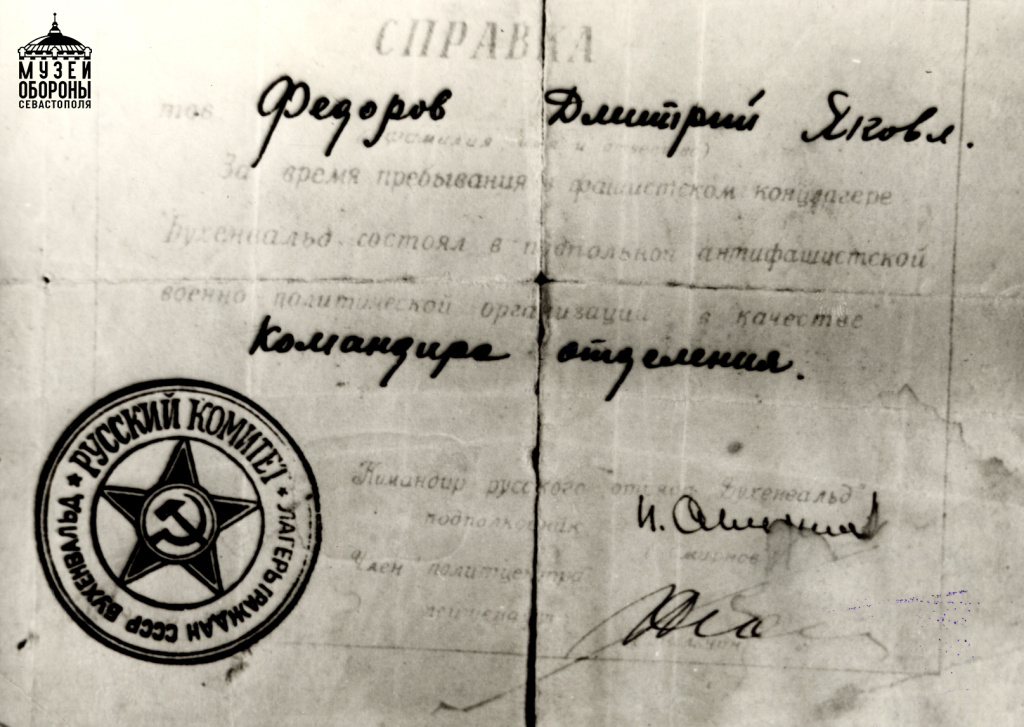 МУЗЕЙ
ОБОРОНЫ
СЕВАСТОПОЛЯ
СПРАВКА
тов. Федоров Дмитрий Яковл.
(фамилия имя и отчество)
За время пребывания в фашистском концлагере
"Бухенвальд" состоял в подпольной антифашистской
военно политической организации в качестве
Командира отделения.
РУССКИЙ КОМИТЕТ ЛАГЕРЬ ГРАЖДАН СССР БУХЕНВАЛЬД
Командир русского отряда "Бухенвальд"
подполковник И. Смирнов
Член политцентра
лейтенант